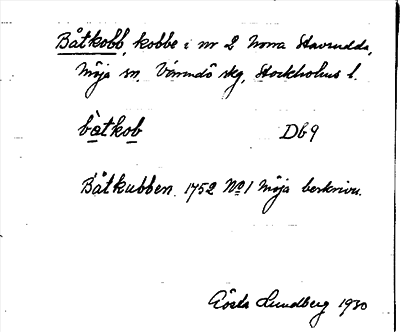 Båtkobb, kobbe i nr 2 Norra Stavsudda,
Möja sn. Värmdö skg, Stockholms l.
båtkob Db9
Båtkubben. 1752 No 1 Möja beskrivn.
Gösta Lundberg 1930